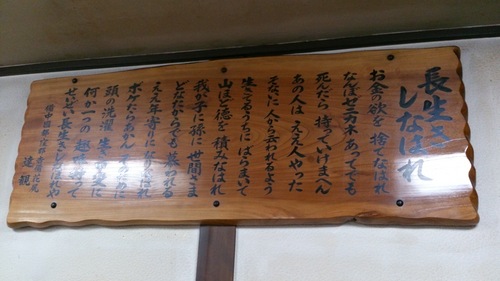 長生き
しなはれ
お金の欲を捨てなはれ
なんぼゼニカネあってでも
死んだら持っていけまへん
あの人はええ人やった
そないに人から云われるよう
生きてるうちにばらまいて
山ほど徳を積みなはれ
我が子に孫に世間さま
どなたからでも慕われる
ええ年寄りになりなはれ
ボケたらあかんそのために
頭の洗濯生き甲斐に
何か一つの趣味持って
せいぜい長生きしなはれや